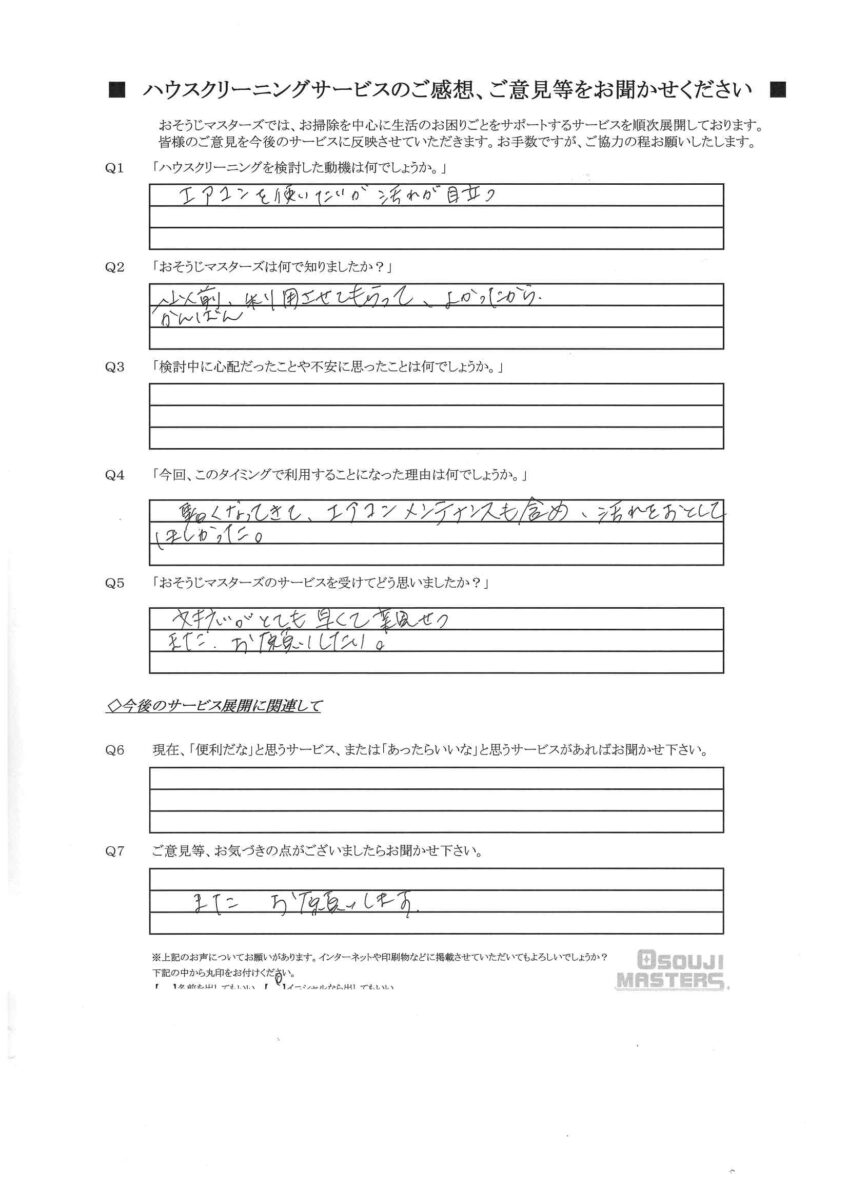 ■ ハウスクリーニングサービスのご感想、ご意見等をお聞かせください ■
おそうじマスターズでは、お掃除を中心に生活のお困りごとをサポートするサービスを順次展開しております。
皆様のご意見を今後のサービスに反映させていただきます。お手数ですが、ご協力の程お願いしたします。
Q1 「ハウスクリーニングを検討した動機は何でしょうか。」
エアコンを使いたいが 汚れが目立つ
Q2 「おそうじマスターズは何で知りましたか？」
以前、利用させてもらって、よかったから.
かんばん
Q3 「検討中に心配だったことや不安に思ったことは何でしょうか。」
Q4 「今回、このタイミングで利用することになった理由は何でしょうか。」
暑くなってきて、エアコンメンテナンスも含め、汚れをおとして
ほしかった。
Q5 「おそうじマスターズのサービスを受けてどう思いましたか？」
がとても 早くて
また、お願いしたい。
◇今後のサービス展開に関連して
Q6 現在、「便利だな」と思うサービス、または「あったらいいな」と思うサービスがあればお聞かせ下さい。
Q7 ご意見等、お気づきの点がございましたらお聞かせ下さい。
また お願いします.
※上記のお声についてお願いがあります。インターネットや印刷物などに掲載させていただいてもよろしいでしょうか？
下記の中から丸印をお付けください。
【 】名前を出してもいい 【○】イニシャルなら出してもいい
OSOUJI
MASTERS